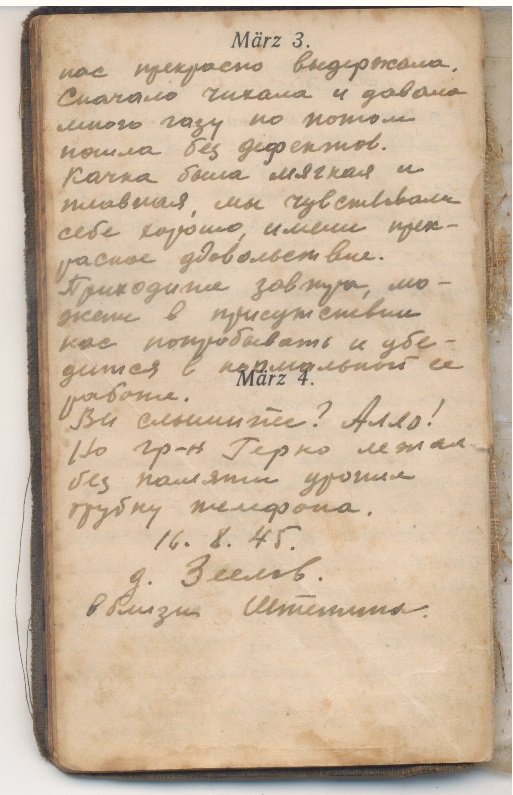 März 3.
нас прекрасно выдержала.
Сначало чихала и давала
много газу но потом
пошла без дефектов.
Качка была мягкая и
плавная, мы чувствовали
себе хорошо, имели прек-
расное удовольствие.
Приходите завтра, мо-
жете в присутствии
нас попробывать и убе-
дится с нормальной ее
März 4.
работе.
Вы слышите? Алло!
Но гр-н Герко лежал
без памяти уронил
трубку телефона.
16. 8. 45.
д. Зеелов.
вблизи Штетина.